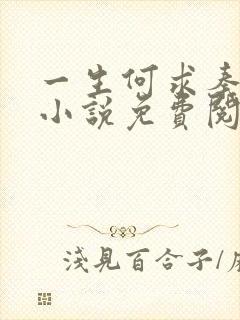 一生何求奏
小說免費閱
淺見百合子/